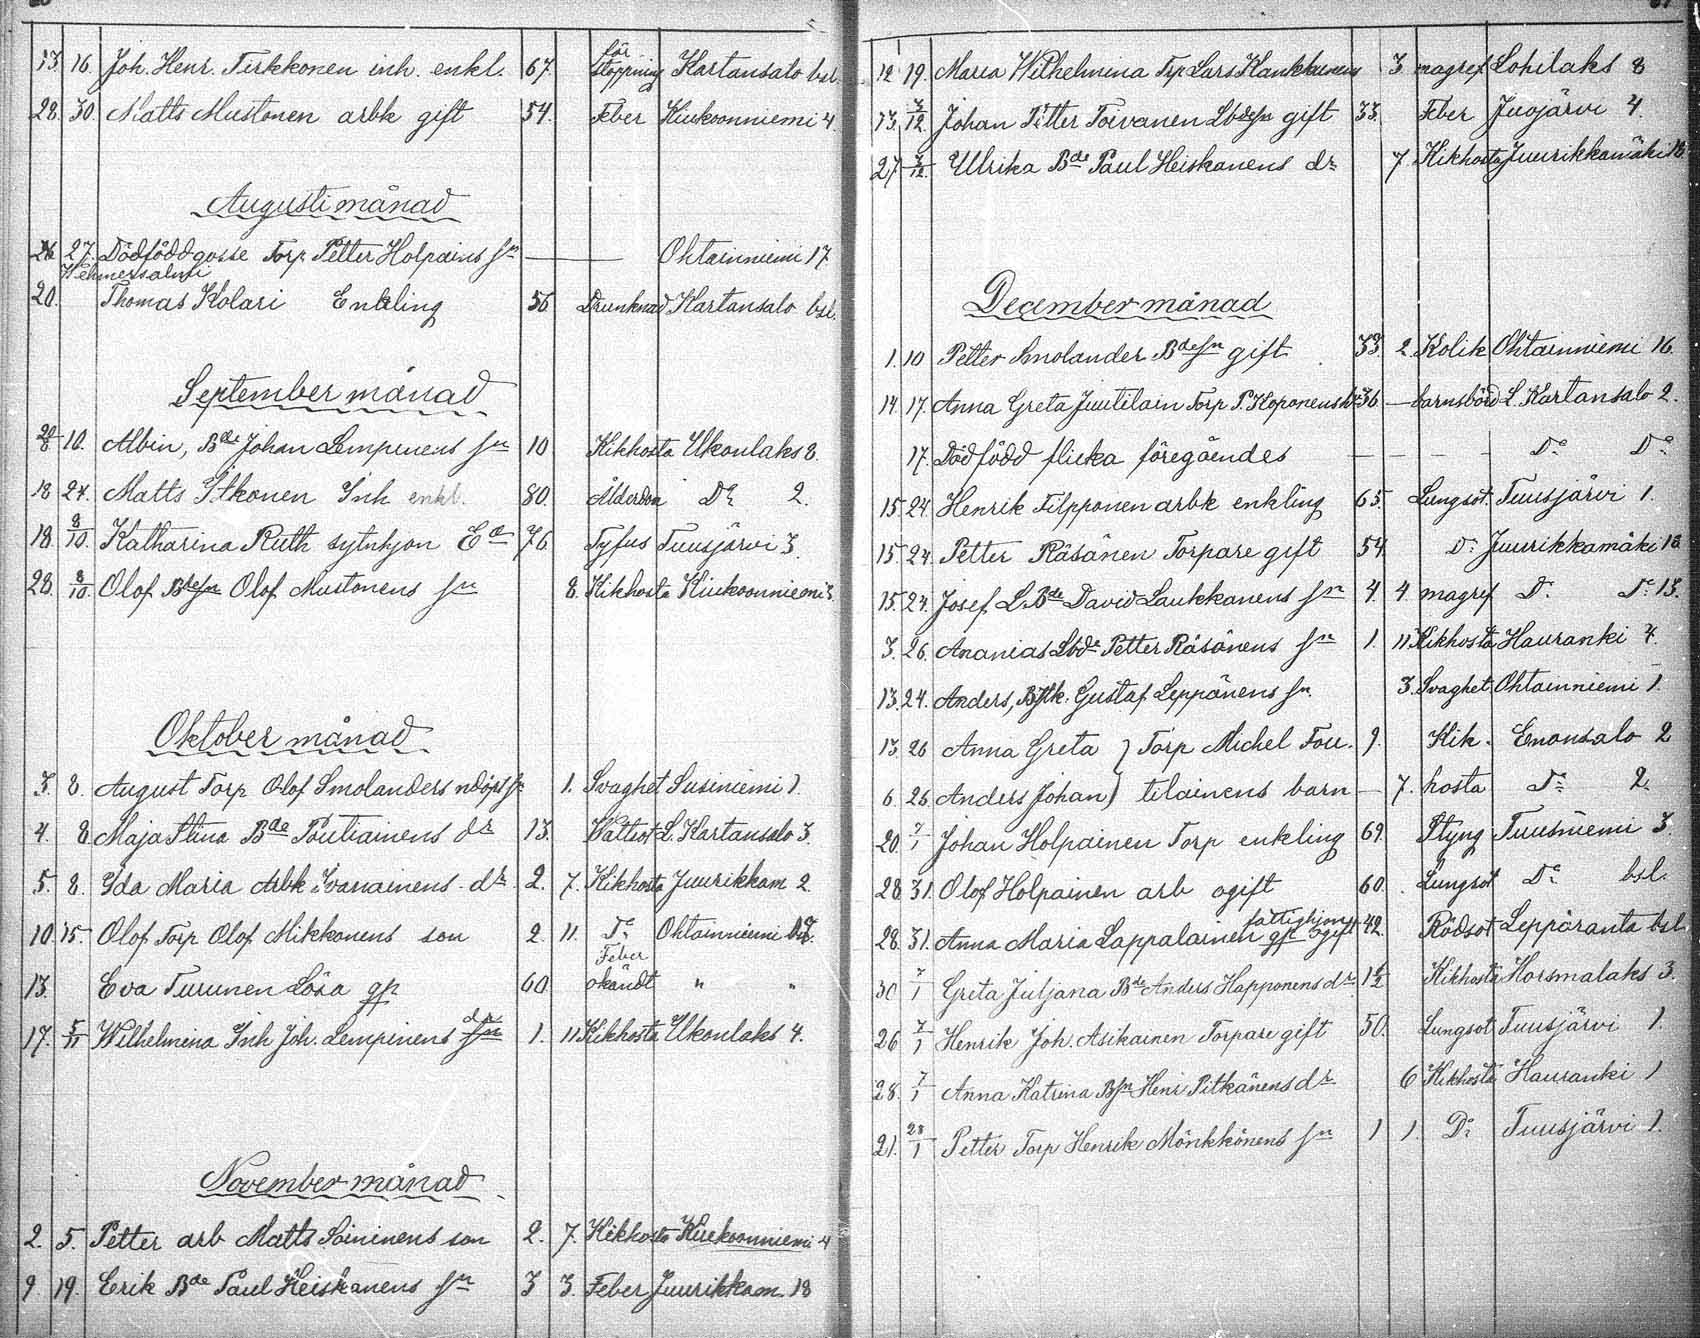 13. 16. Joh. Henr. Tirkkonen inh. enkl. 67. förstoppning Kartansalo bsl.
28. 30. Matts Mustonen arbk gift 54. Feber Kiukoonniemi 4.
Augusti månad
26 27. Dödfödd gosse Torp Petter Holpains sn — Ohtainniemi 17.
Wehmersalmi
20. Thomas Kolari Enkling 56 Drunknad Kartansalo bsl.
September månad
20/8 10. Albin, Bde Johan Lempinens sn 10 Kikhosta Ukonlaks 8.
18 24. Matts Itkonen Inh enkl. 80. Ålderdom Do 2.
18. 8/10. Katharina Ruth sytnhjon Ea 76 Tyfus Tuusjärvi 3.
28. 8/10. Olof Bdesn Olof Mustonens sn 8. Kikhosta Kiukoonniemi 3.
Oktober månad
3. 8. August Torp Olof Smolanders ndöpt sn 1. Svaghet Susiniemi 1.
4. 8. Maja Stina Bde Poutiainens dr 13. Wattsot L. Kartansalo 3.
5. 8. Ida Maria Arbk Ivanainens dr 2. 7. Kikhosta Juurikkam 2.
10. 15. Olof Torp Olof Mikkonens son 2. 11. Do Ohtainniemi
13. Eva Turunen Lösa qp 60. Feber okändt " "
17. 5/11 Wilhelmina Inh Joh. Lempinens dr 1. 11 Kikhosta Ukonlaks 4.
November månad
2. 5. Petter arb Matts Soininens son 2. 7. Kikhosta Kiukoonniemi 4
9 19. Erik Bde Paul Heiskanens sn 3 3. Feber Juurikkam. 18
12 19. Maria Wilhelmina Trp Lars Kankkunens 3 magref Lohilaks 8
13. 3/12. Johan Petter Toivanen Lbdesn gift 33. Feber Juojärvi 4.
27 3/12. Ulrika Bde Paul Heiskanens dr 7 Kikhosta Juurikkamäki 18
December månad
1. 10 Petter Smolander Bdesn gift 33 2. Kolik Ohtainniemi 16.
14. 17. Anna Greta Juutilain Torp P. Koponens h. 36 — barnsbörd L. Kartansalo 2.
17. Dödfödd flicka föregåendes — — — — Do Do
15. 24. Henrik Filpponen arbk enkling 65. Lungsot. Tuusjärvi 1.
15. 24. Petter Räsänen Torpare gift 54. Do Juurikkamäki 18.
15. 24. Josef L. Bde David Laukkanens sn 4. 4 magref Do Do 13.
3. 26. Ananias Lbde Petter Räsänens sn 1. 11 Kikhosta Hauranki 4.
13. 24. Anders, Bftk. Gustaf Leppänens sn 3. Svaghet Ohtainniemi 1.
13. 26 Anna Greta } Torp Michel Tou- 9. Kik- Enonsalo 2
6. 26 Anders Johan } tilainens barn — 7. hosta Do 2.
20 7/1 Johan Holpainen Torp enkling 69. Styng Tuusniemi 3.
28. 31. Olof Holpainen arb ogift 60. Lungsot Do bsl.
28. 31. Anna Maria Lappalainen fattighjon ogift 42. Rödsot Leppäranta bsl
30 7/1 Greta Juljana Bde Anders Happonens dr 1½ Kikhosta Horsmalaks 3.
26 7/1 Henrik Joh. Asikainen Torpare gift 50. Lungsot Tuusjärvi 1.
28. 7/1 Anna Katrina Bsn Henr Pitkänens dr 6 Kikhosta Hauranki 1
21. 28/1 Petter Torp Henrik Mönkkönens sn 1 1. Do Tuusjärvi 1.